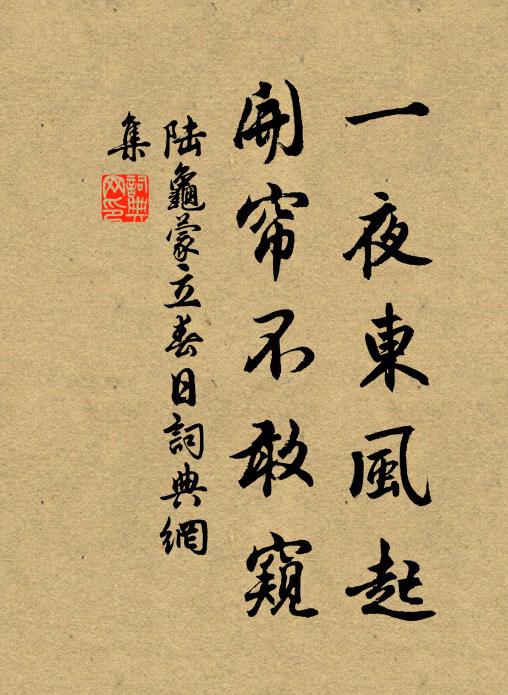 一夜東風起
開帘不敢窺
陸龜蒙立春日詞典網
集
詞典網印